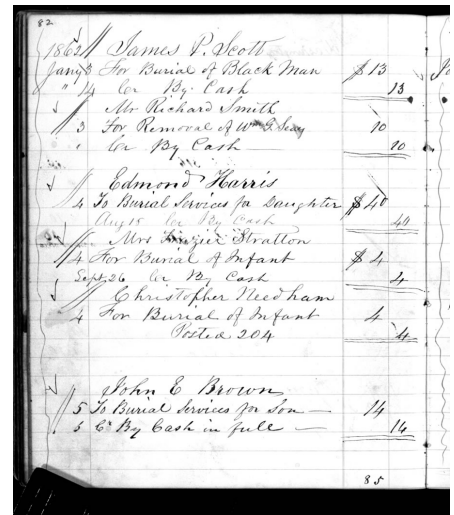 82
1862 James P. Scott
Jany 3 For Burial of Black Man $13
" 4 Cr By Cash 13
Mr Richard Smith
3 For Removal of Wm G. 10
" Cr By Cash — 10
Edmond Harris
4 To Burial Services for Daughter $40
Aug 15 Cr By Cash 40
Mrs Frazier Stratton
4 For Burial of Infant $4
Sept 26 Cr By Cash 4
Christopher Needham
4 For Burial of Infant 4
Posted 204 4
John E Brown
5 To Burial Services for Son — 14
5 Cr By Cash in full — 14
85